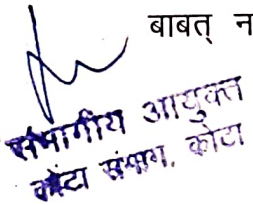 बाबत् न
संभागीय आयुक्त
कोटा संभाग, कोटा